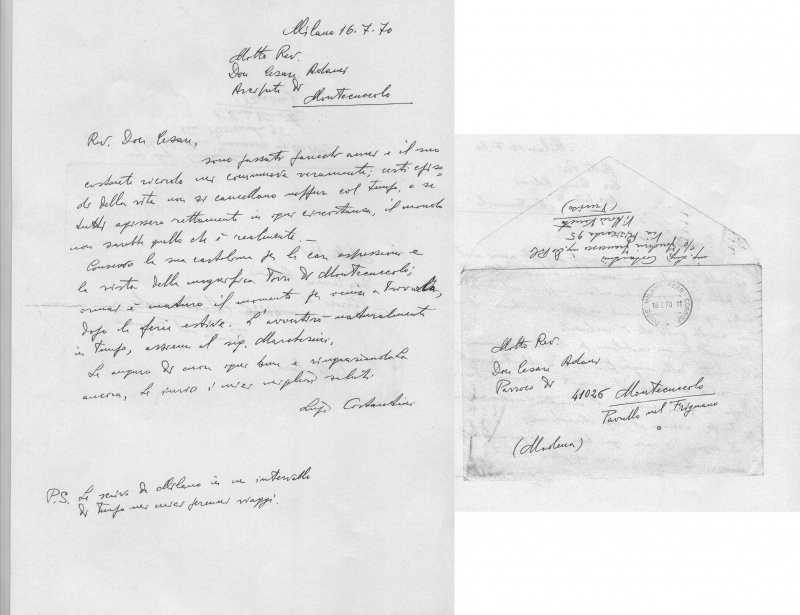 Milano 16.7.70
Molto Rev.
Don Cesare Adani
Arciprete di
Montecuccolo
Rev. Don Cesare,
sono passati parecchi anni e il suo
costante ricordo mi commuove veramente; certi episo-
di della vita non si cancellano neppure col tempo, e se
tutti agissero rettamente in ogni circostanza, il mondo
non sarebbe quello che è realmente.
Conservo la sua cartolina per le care espressioni e
la vista della magnifica Torre di Montecuccolo;
ormai è maturo il momento per venire a trovarla,
dopo le ferie estive. L'avvertirò naturalmente
in tempo, assieme al sig. Marchesini.
Le auguro di cuore ogni bene e ringraziandola
ancora, Le invio i miei migliori saluti
Luigi Costantini
P.S. Le scrivo da Milano in un intervallo
di tempo nei miei viaggi.
ing. Luigi Costantini
Via 95
Vittorio Veneto
(Treviso)
POSTE MILANO FERR. CORRISP.
16.7.70
Molto Rev.
Don Cesare Adani
Parroco di
41026 Montecuccolo
Pavullo nel Frignano
(Modena)